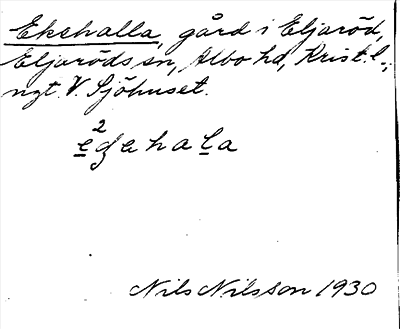 Ekehalla, gård i Eljaröd,
Eljaröds sn, Albo hd, Krist. l.,
ngt. V. Sjöhuset.
e²gehala
Nils Nilsson 1930